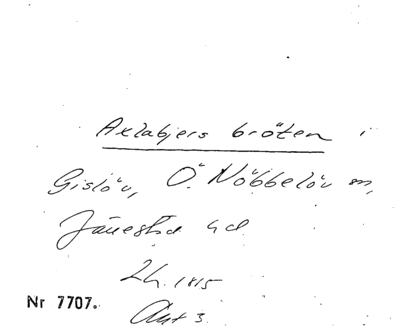 Axlabjers bröten i
Gislöv, Ö. Nöbbelöv sn,
Järrestad hd
24. 1815
Nr 7707. Akt 3.